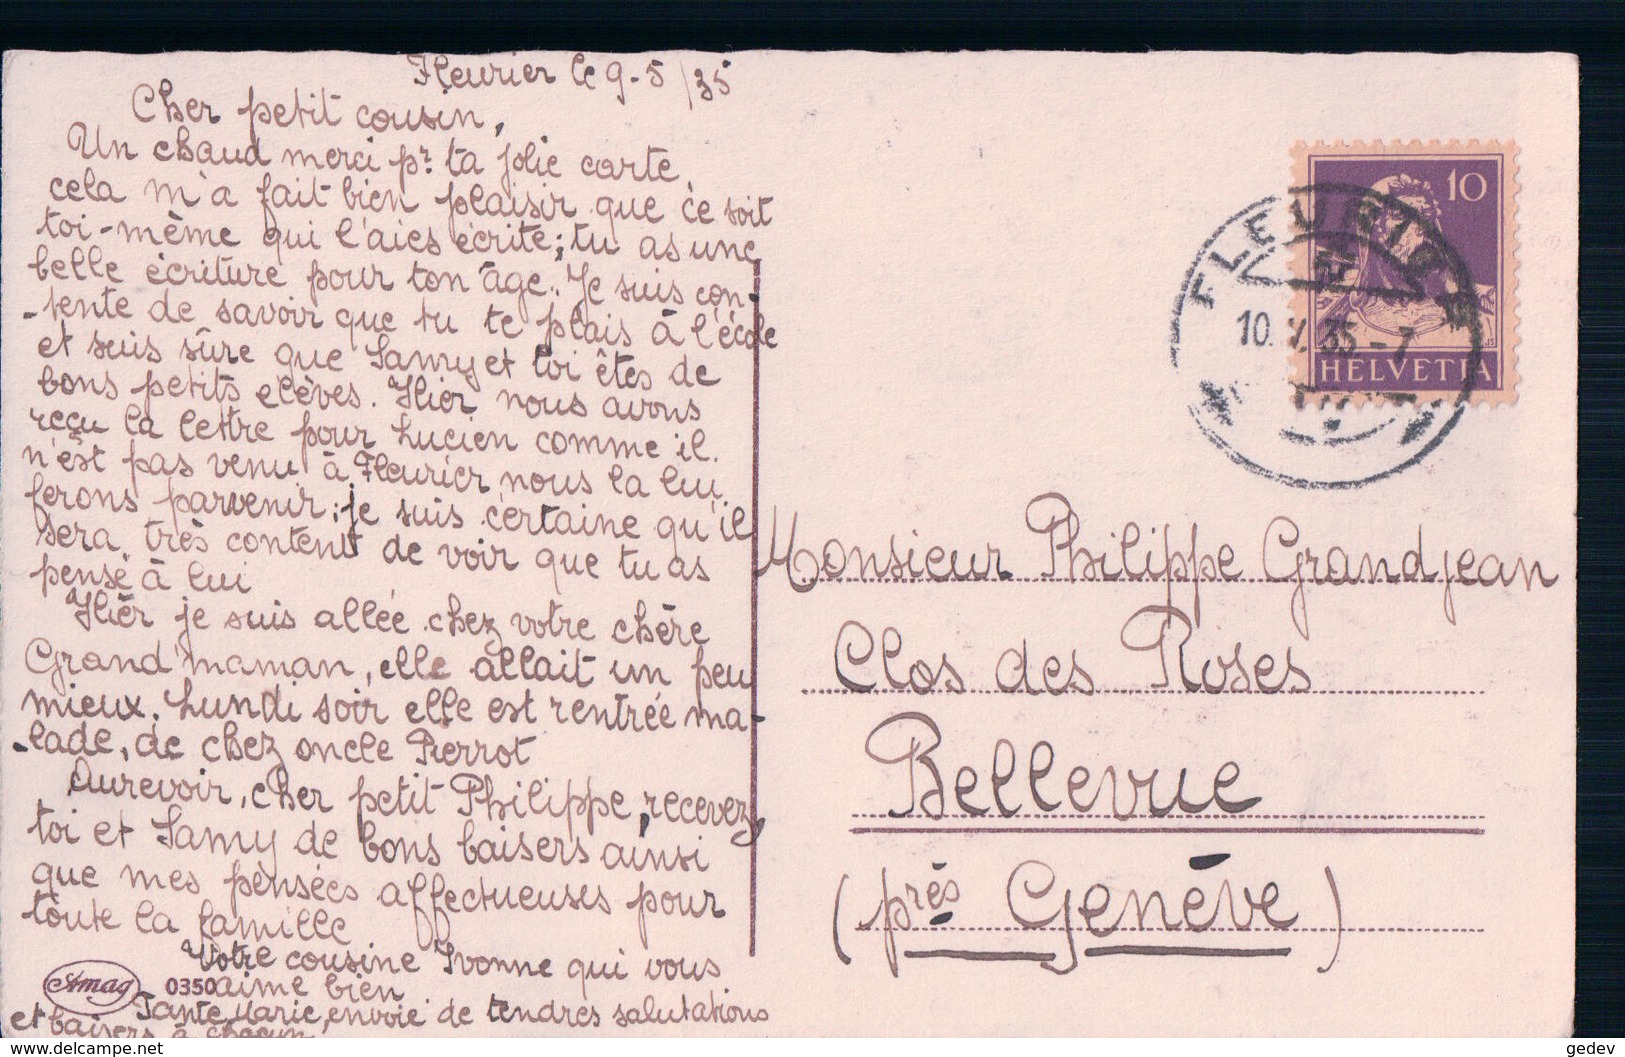 Fleurier le 9-5/35
Cher petit cousin,
Un chaud merci pr. ta jolie carte
cela m'a fait bien plaisir que ce soit
toi-même qui l'aies écrite; tu as une
belle écriture pour ton âge. Je suis con-
-tente de savoir que tu te plais à l'école
et suis sûre que Samy et toi êtes de
bons petits elèves. Hier nous avons
reçu la lettre pour Lucien comme il
n'est pas venu à Fleurier nous la lui
ferons parvenir; je suis certaine qu'il
sera très content de voir que tu as
pensé à lui
Hièr je suis allée chez votre chère
Grand'maman, elle allait un peu
mieux. Lundi soir elle est rentrée ma-
-lade, de chez oncle Pierrot
Aurevoir, cher petit Philippe, recevez,
toi et Samy de bons baisers ainsi
que mes pensées affectueuses pour
toute la famille
Votre cousine Yvonne qui vous
aime bien
Tante Marie, envoie de tendres salutations
et baisers à chacun
Amag 0350
10
HELVETIA
FLEURIER
10.V.35-7
Monsieur Philippe Grandjean
Clos des Roses
Bellevue
(près Genève)
gedev
https://www.delcampe.net